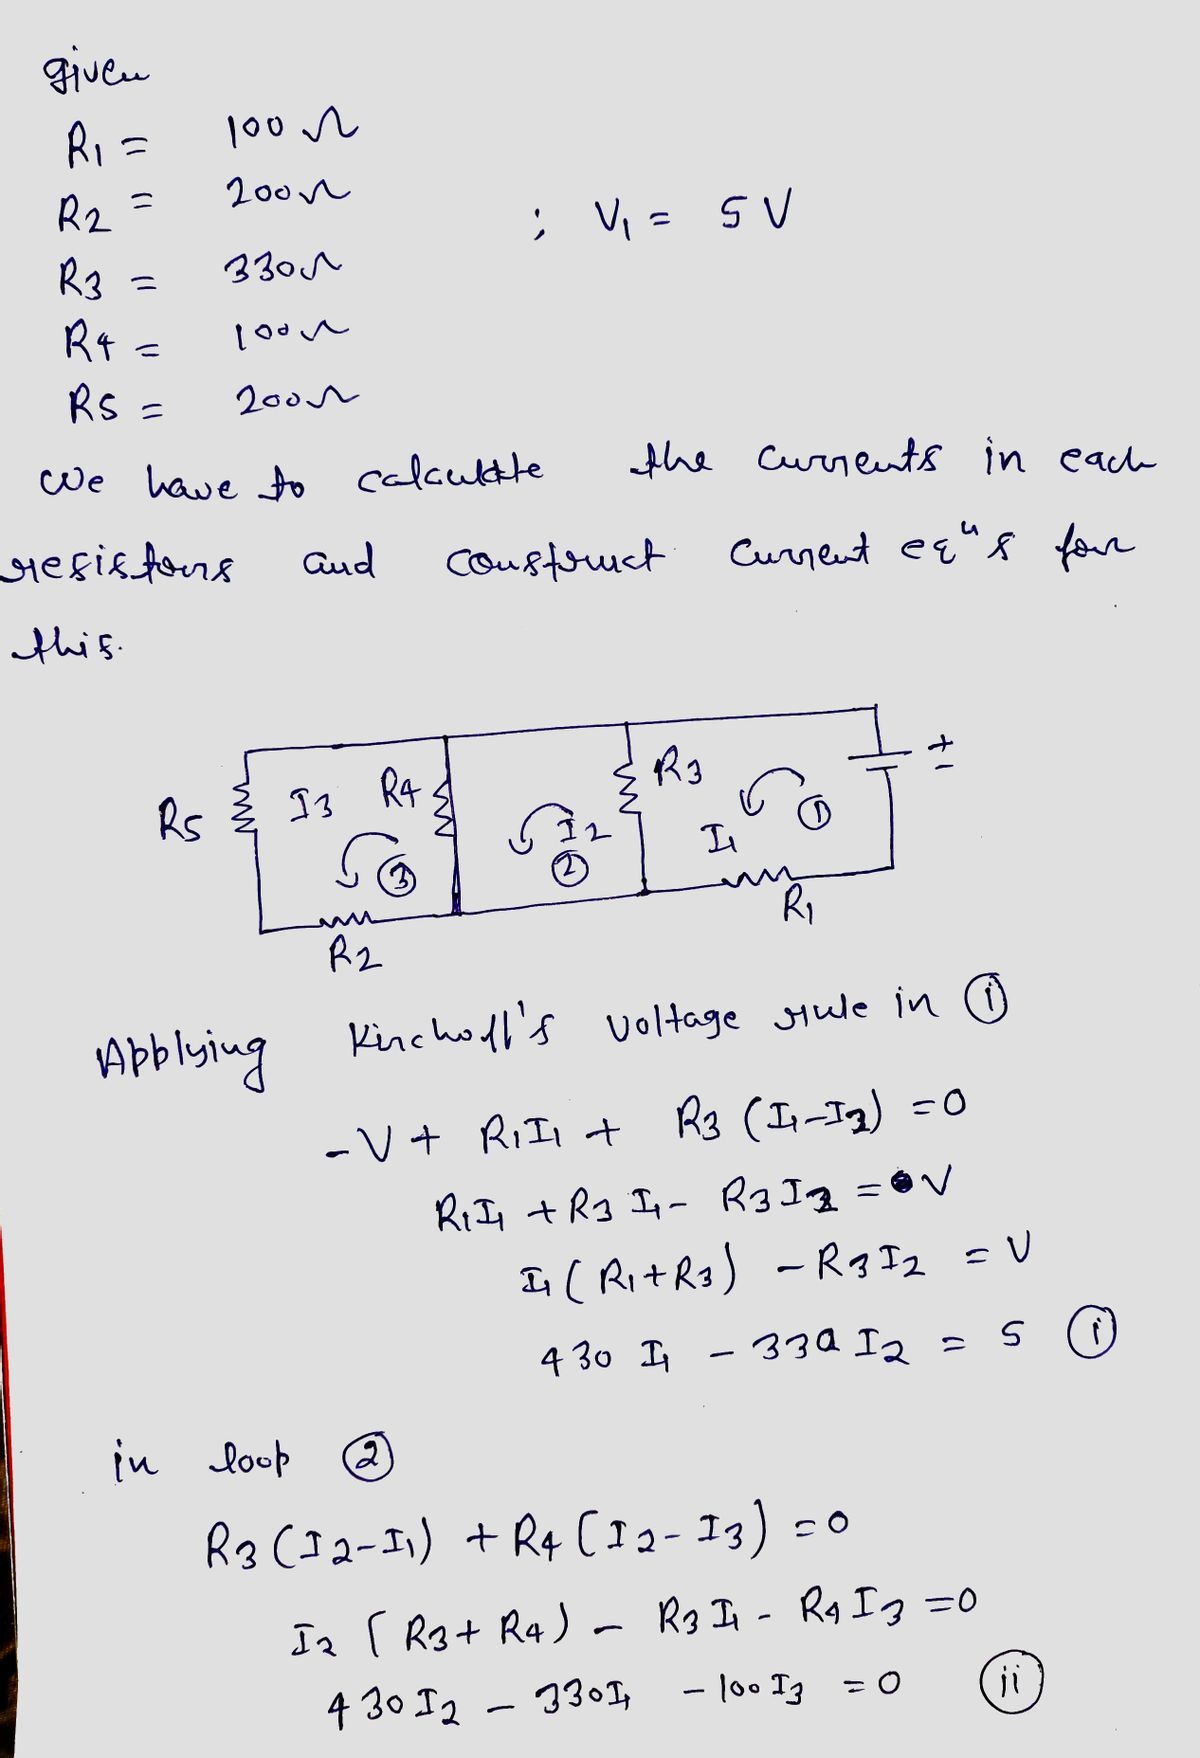 given
R1 = 100 Ω
R2 = 200Ω
; V1 = 5 V
R3 = 330Ω
R4 = 100Ω
R5 = 200Ω
we have to calculate the currents in each
resistors and construct current eqⁿs for
this.
R5 I3 R4 I2 R3 I1 + -
③ ② ①
R2 R1
Applying Kirchoff's voltage rule in ①
-V + R1I1 + R3 (I1-I2) = 0
R1I1 + R3 I1 - R3 I2 = V
I1 (R1+R3) - R3 I2 = V
430 I1 - 330 I2 = 5 (i)
in loop ②
R3 (I2-I1) + R4 (I2-I3) = 0
I2 (R3+R4) - R3 I1 - R4 I3 = 0
430 I2 - 330I1 - 100 I3 = 0 (ii)